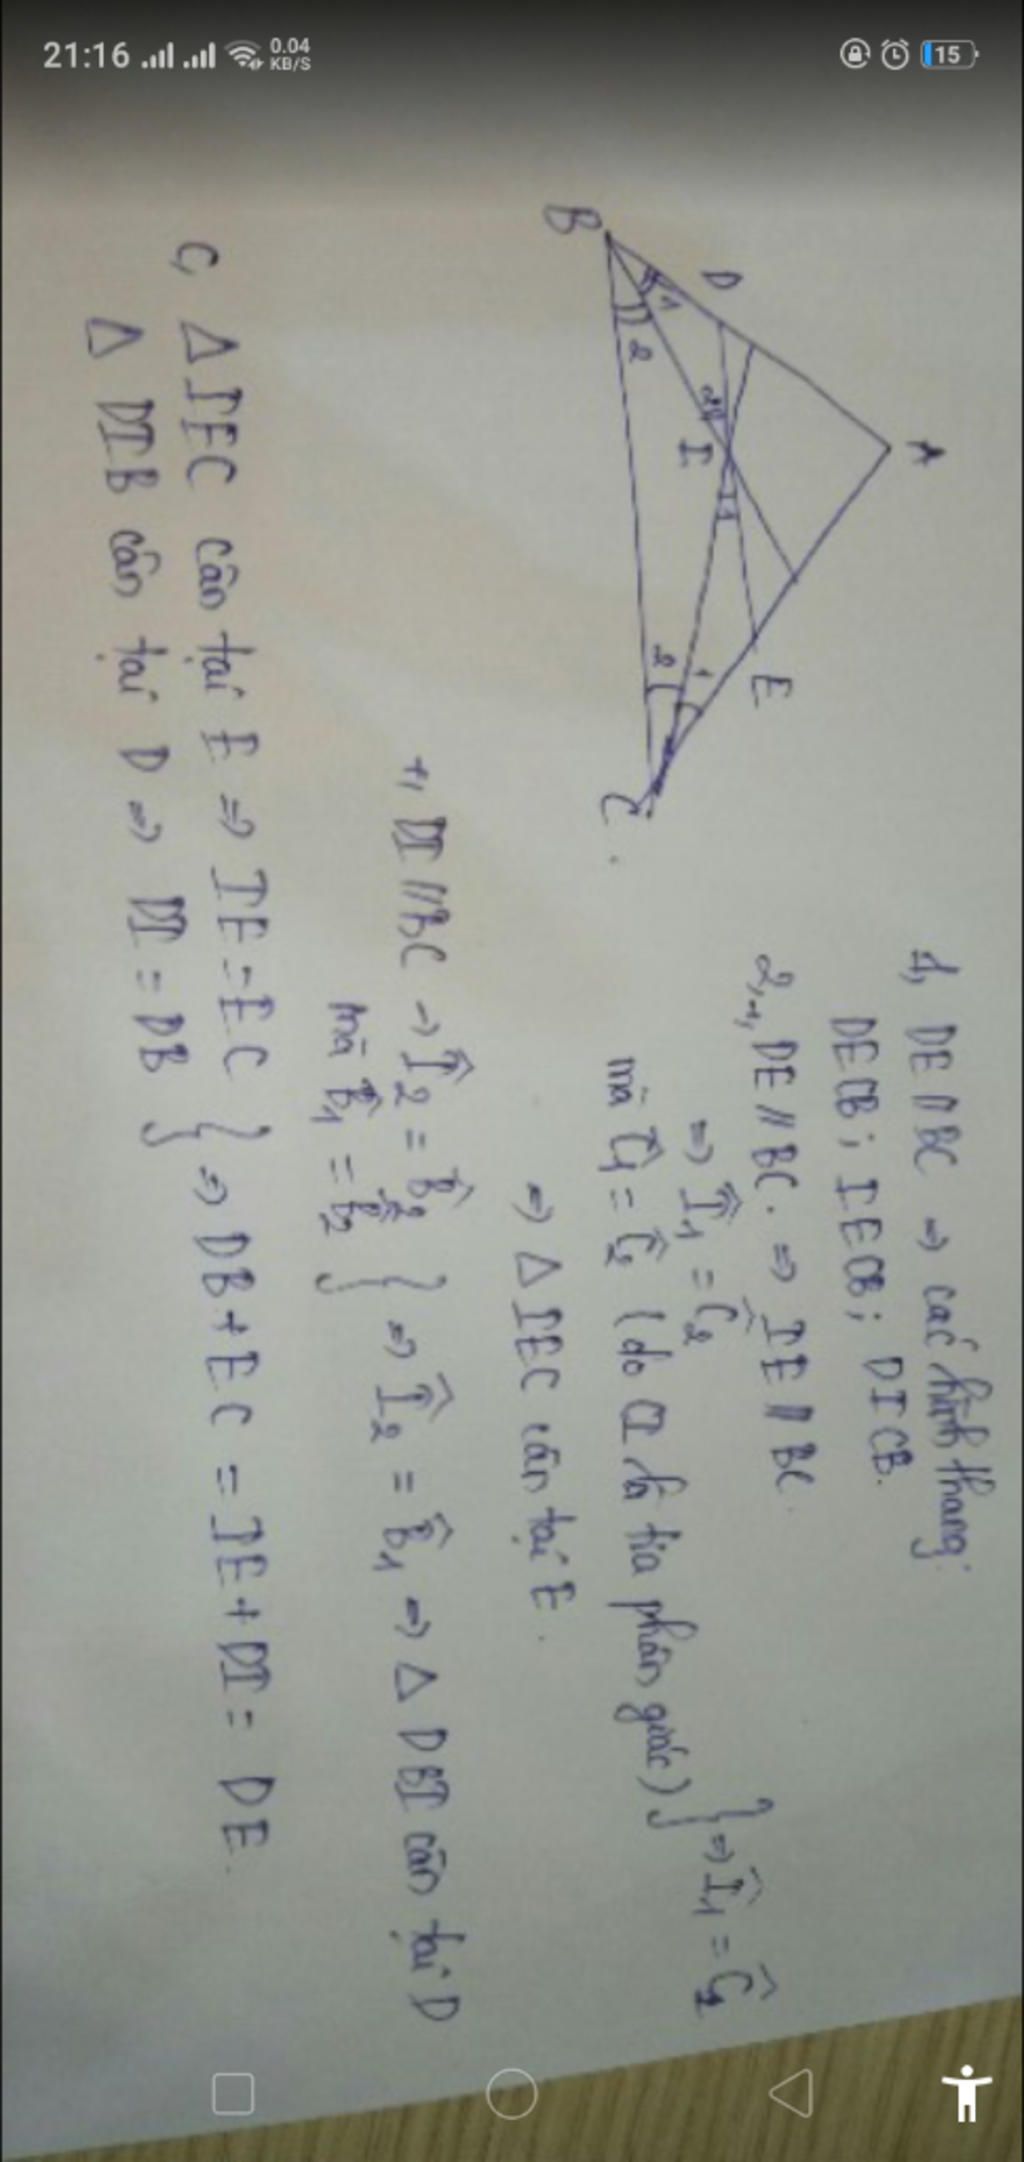 21:16 0.04 KB/S 15
A
D
E
B
C
I
1
2
2
1
1
2
1, DE // BC → các hình thang:
DECB; IECB; DICB.
2, +, DE // BC. ⇒ IE // BC.
⇒ Î1 = Ĉ2
mà Ĉ1 = Ĉ2 (do CI là tia phân giác) } ⇒ Î1 = Ĉ1
⇒ Δ IEC cân tại E.
+, DI // BC → Î2 = B̂2
mà B̂1 = B̂2 } ⇒ Î2 = B̂1 ⇒ Δ DBI cân tại D
C, Δ IEC cân tại E ⇒ IE = EC
Δ DIB cân tại D ⇒ DI = DB } ⇒ DB + EC = IE + DI = DE.